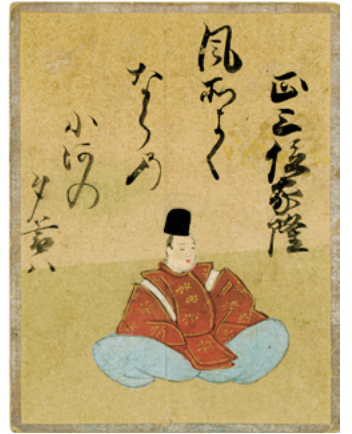 正三位家隆
風そよく
ならの
小河の
夕暮ハ